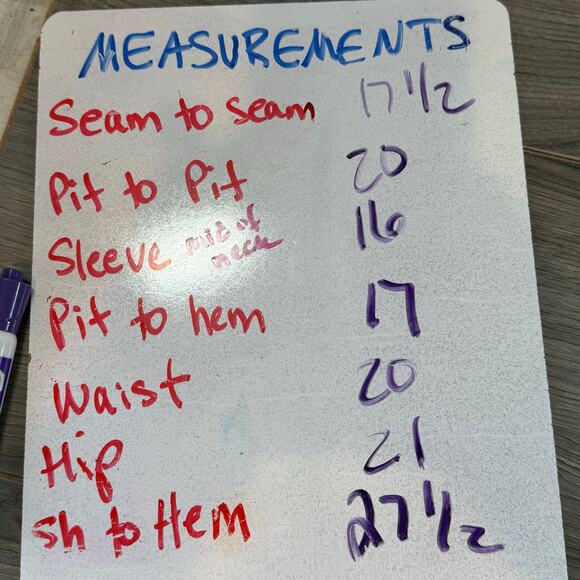 MEASUREMENTS
Seam to Seam 17 1/2
Pit to Pit 20
Sleeve mid of neck 16
Pit to hem 17
Waist 20
Hip 21
Sh to Hem 27 1/2